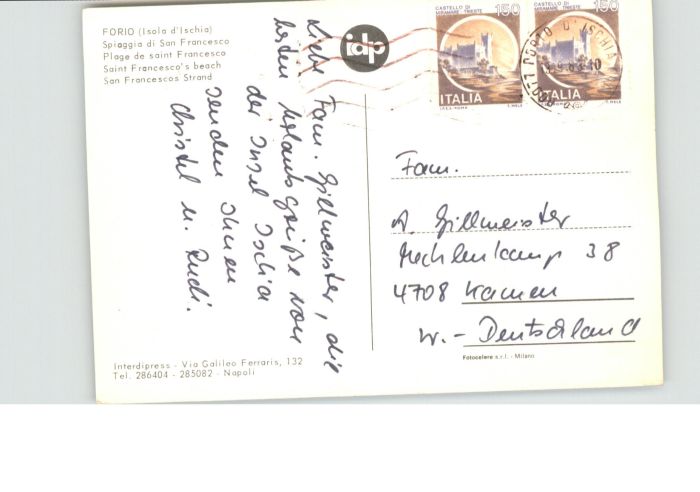 FORIO (Isola d'Ischia)
Spiaggia di San Francesco
Plage de saint Francesco
Saint Francesco's beach
San Francescos Strand
idp
Liebe Fam. Gillmeister, die
besten Urlaubsgrüße von
der Insel Ischia
senden Ihnen
Christel u. Rudi.
CASTELLO DI
MIRAMARE TRIESTE
150
ITALIA
I.P.Z.S. ROMA
T. MELE
CASTELLO DI
MIRAMARE TRIESTE
150
ITALIA
T. MELE
PORTO D'ISCHIA
Fam.
A. Gillmeister
Mechlenkamp 38
4708 Kamen
W.-Deutschland
Interdipress - Via Galileo Ferraris, 132
Tel. 286404 - 285082 - Napoli
Fotocelere s.r.l. - Milano